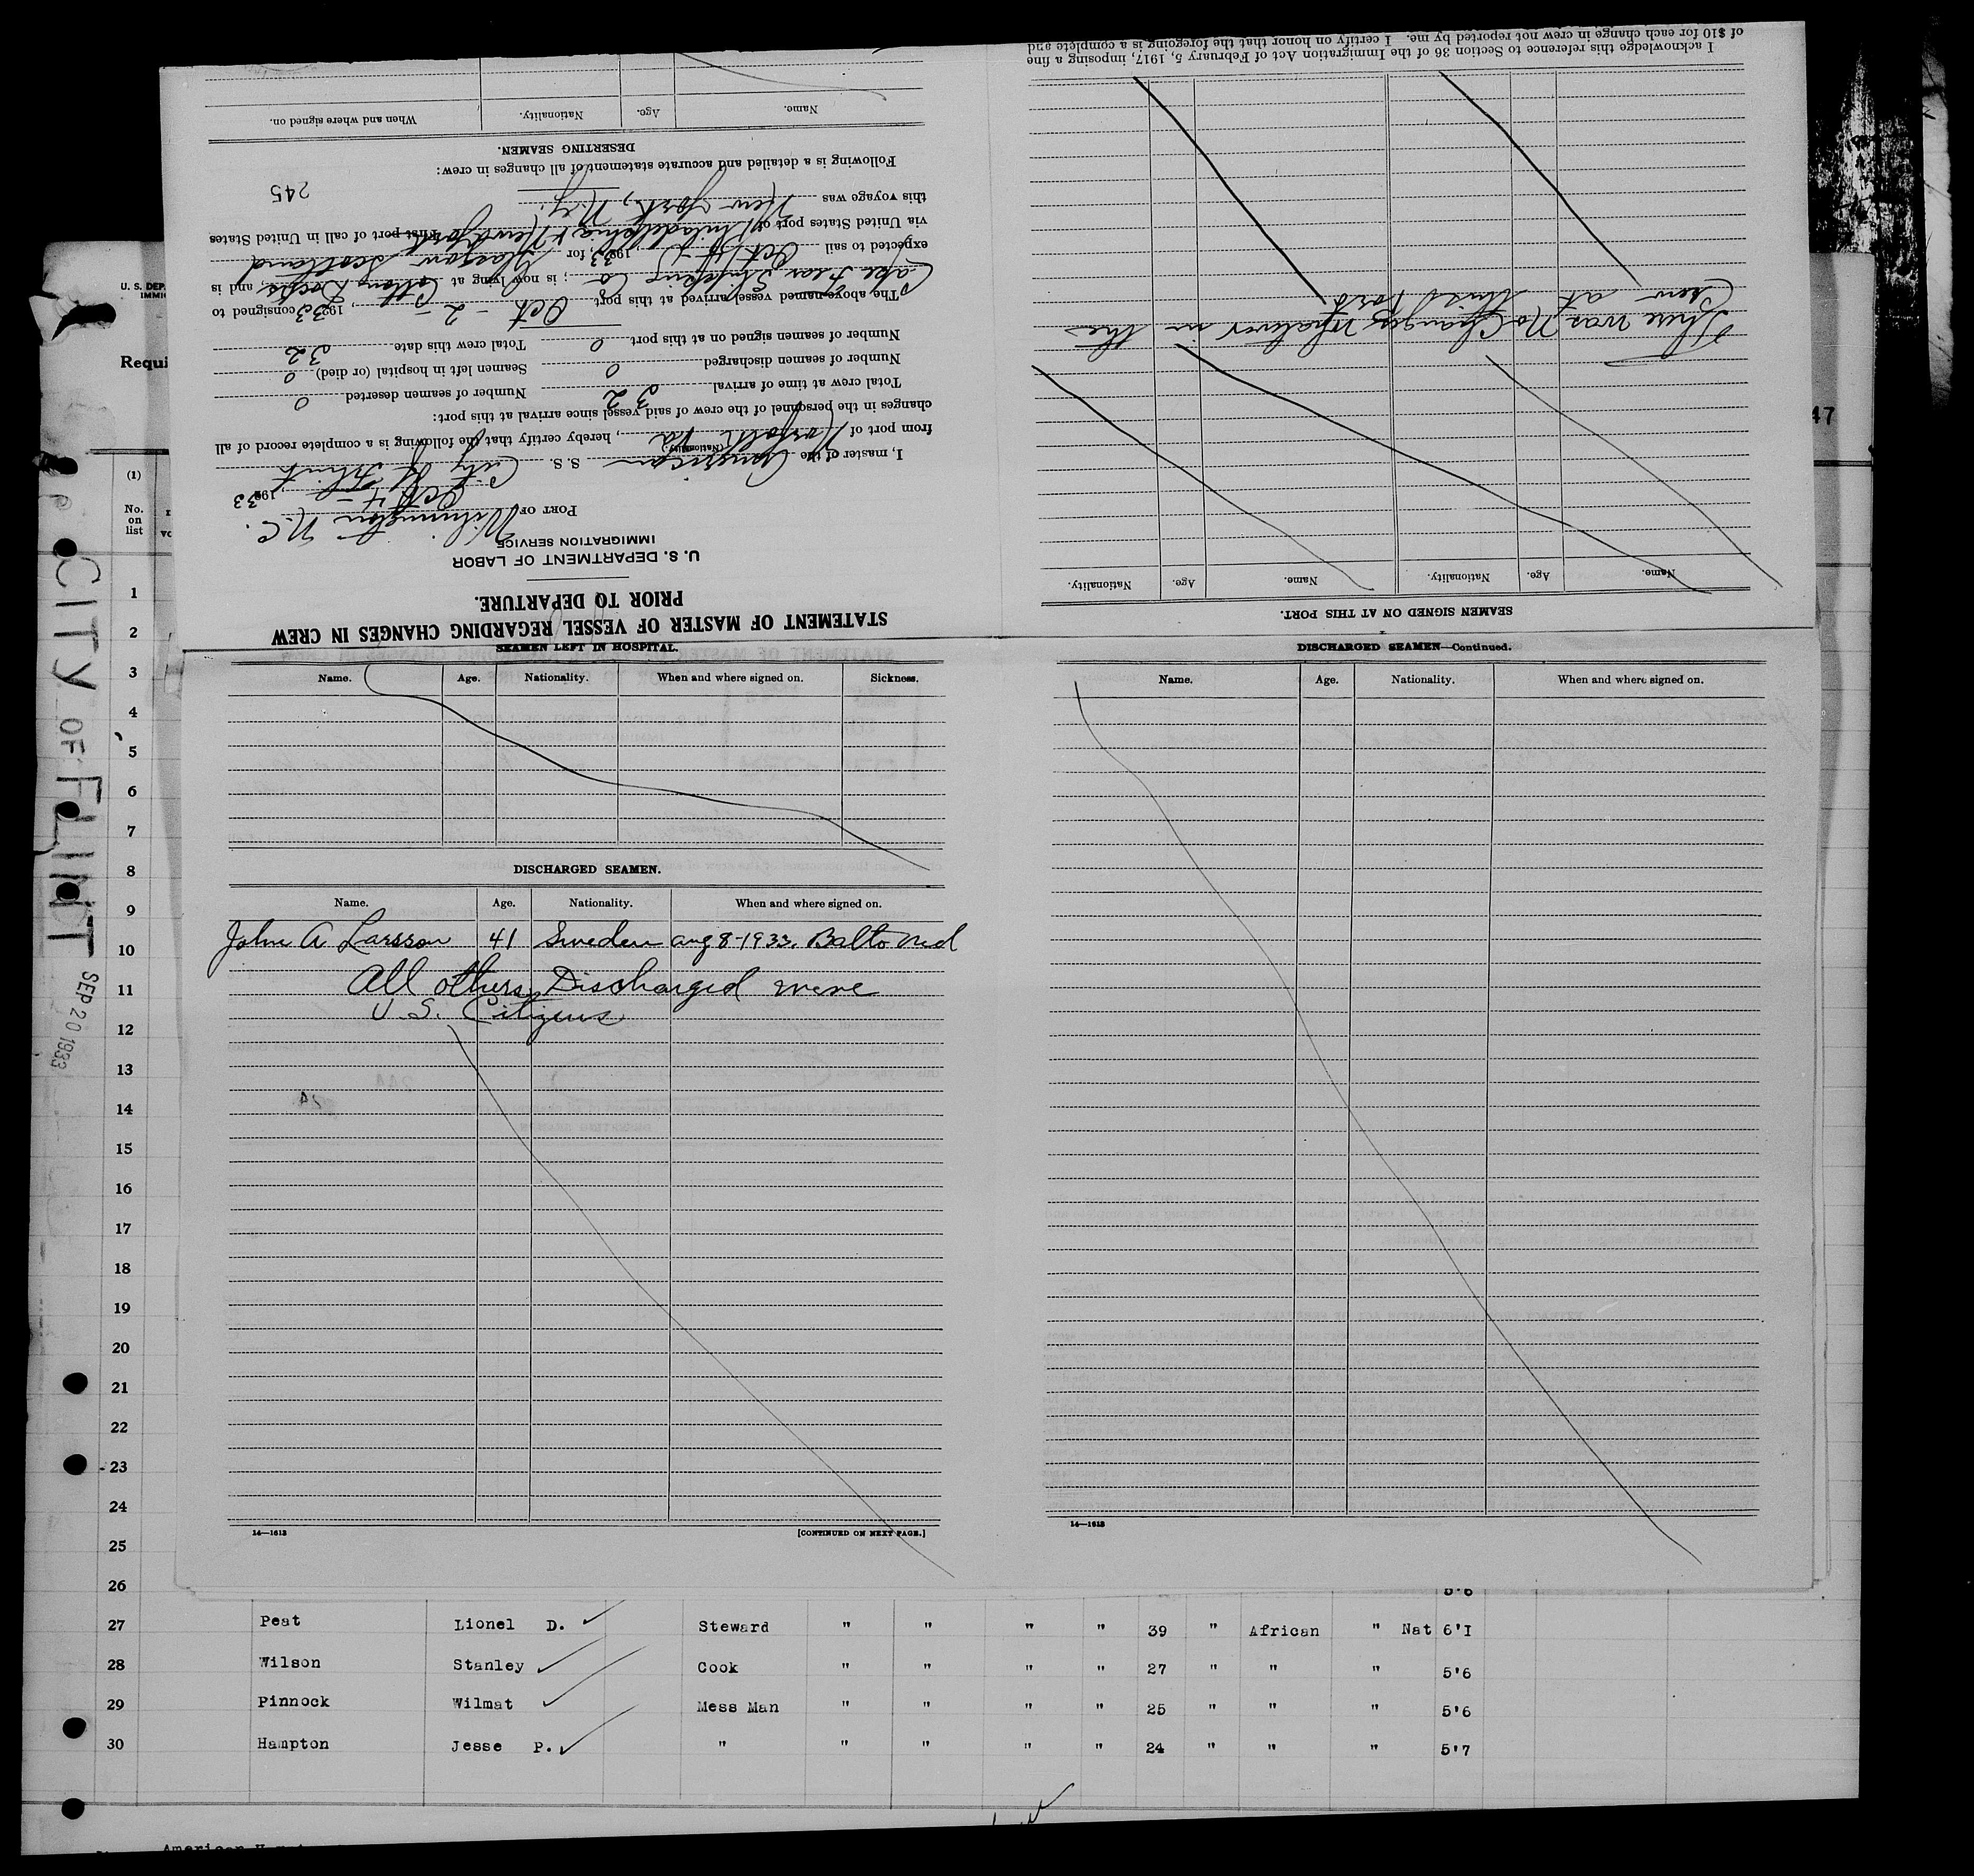 STATEMENT OF MASTER OF VESSEL REGARDING CHANGES IN CREW
PRIOR TO DEPARTURE.
U. S. DEPARTMENT OF LABOR
IMMIGRATION SERVICE
PORT OF Wilmington N.C.
Oct 4 -, 1933
I, master of the American S. S. City of Flint
(Nationality)
from port of Norfolk Va, hereby certify that the following is a complete record of all
changes in the personnel of the crew of said vessel since arrival at this port:
Total crew at time of arrival 32 Number of seamen deserted 0
Number of seamen discharged 0 Seamen left in hospital (or died) 0
Number of seamen signed on at this port 0 Total crew this date 32
The above-named vessel arrived at this port Oct - 2 -, 1933 consigned to
Cape Fear Shipping Co; is now lying at Cotton Docks, and is
expected to sail Oct 4-, 1933, for Glasgow Scotland
via United States port of Philadelphia & New York First port of call in United States
this voyage was New York, N.Y.
245
Following is a detailed and accurate statement of all changes in crew:
DESERTING SEAMEN.
Name. Age. Nationality. When and where signed on.
SEAMEN SIGNED ON AT THIS PORT.
Name. Age. Nationality. Name. Age. Nationality.
There was No Changes Whatever in the
Crew at this Port
I acknowledge this reference to Section 36 of the Immigration Act of February 5, 1917, imposing a fine
of $10 for each change in crew not reported by me. I certify on honor that the foregoing is a complete and
SEAMEN LEFT IN HOSPITAL.
Name. Age. Nationality. When and where signed on. Sickness.
DISCHARGED SEAMEN.
Name. Age. Nationality. When and where signed on.
John A Larsson 41 Sweden aug 8-1933. Balto Md
All others Discharged were
U.S. Citizens
14—1613 [CONTINUED ON NEXT PAGE.]
DISCHARGED SEAMEN—Continued.
Name. Age. Nationality. When and where signed on.
14—1613
U. S. DEP
IMMI
Requi
47
CITY OF FLINT SEP 20 1933
(1)
No.
on
list
1
2
3
4
5
6
7
8
9
10
11
12
13
14
15
16
17
18
19
20
21
22
23
24
25
26 5'6
27 Peat Lionel D. Steward " " " " 39 " African " Nat 6'I
28 Wilson Stanley Cook " " " " 27 " " " 5'6
29 Pinnock Wilmat Mess Man " " " " 25 " " " 5'6
30 Hampton Jesse P. " " " " " 24 " " " 5'7
American